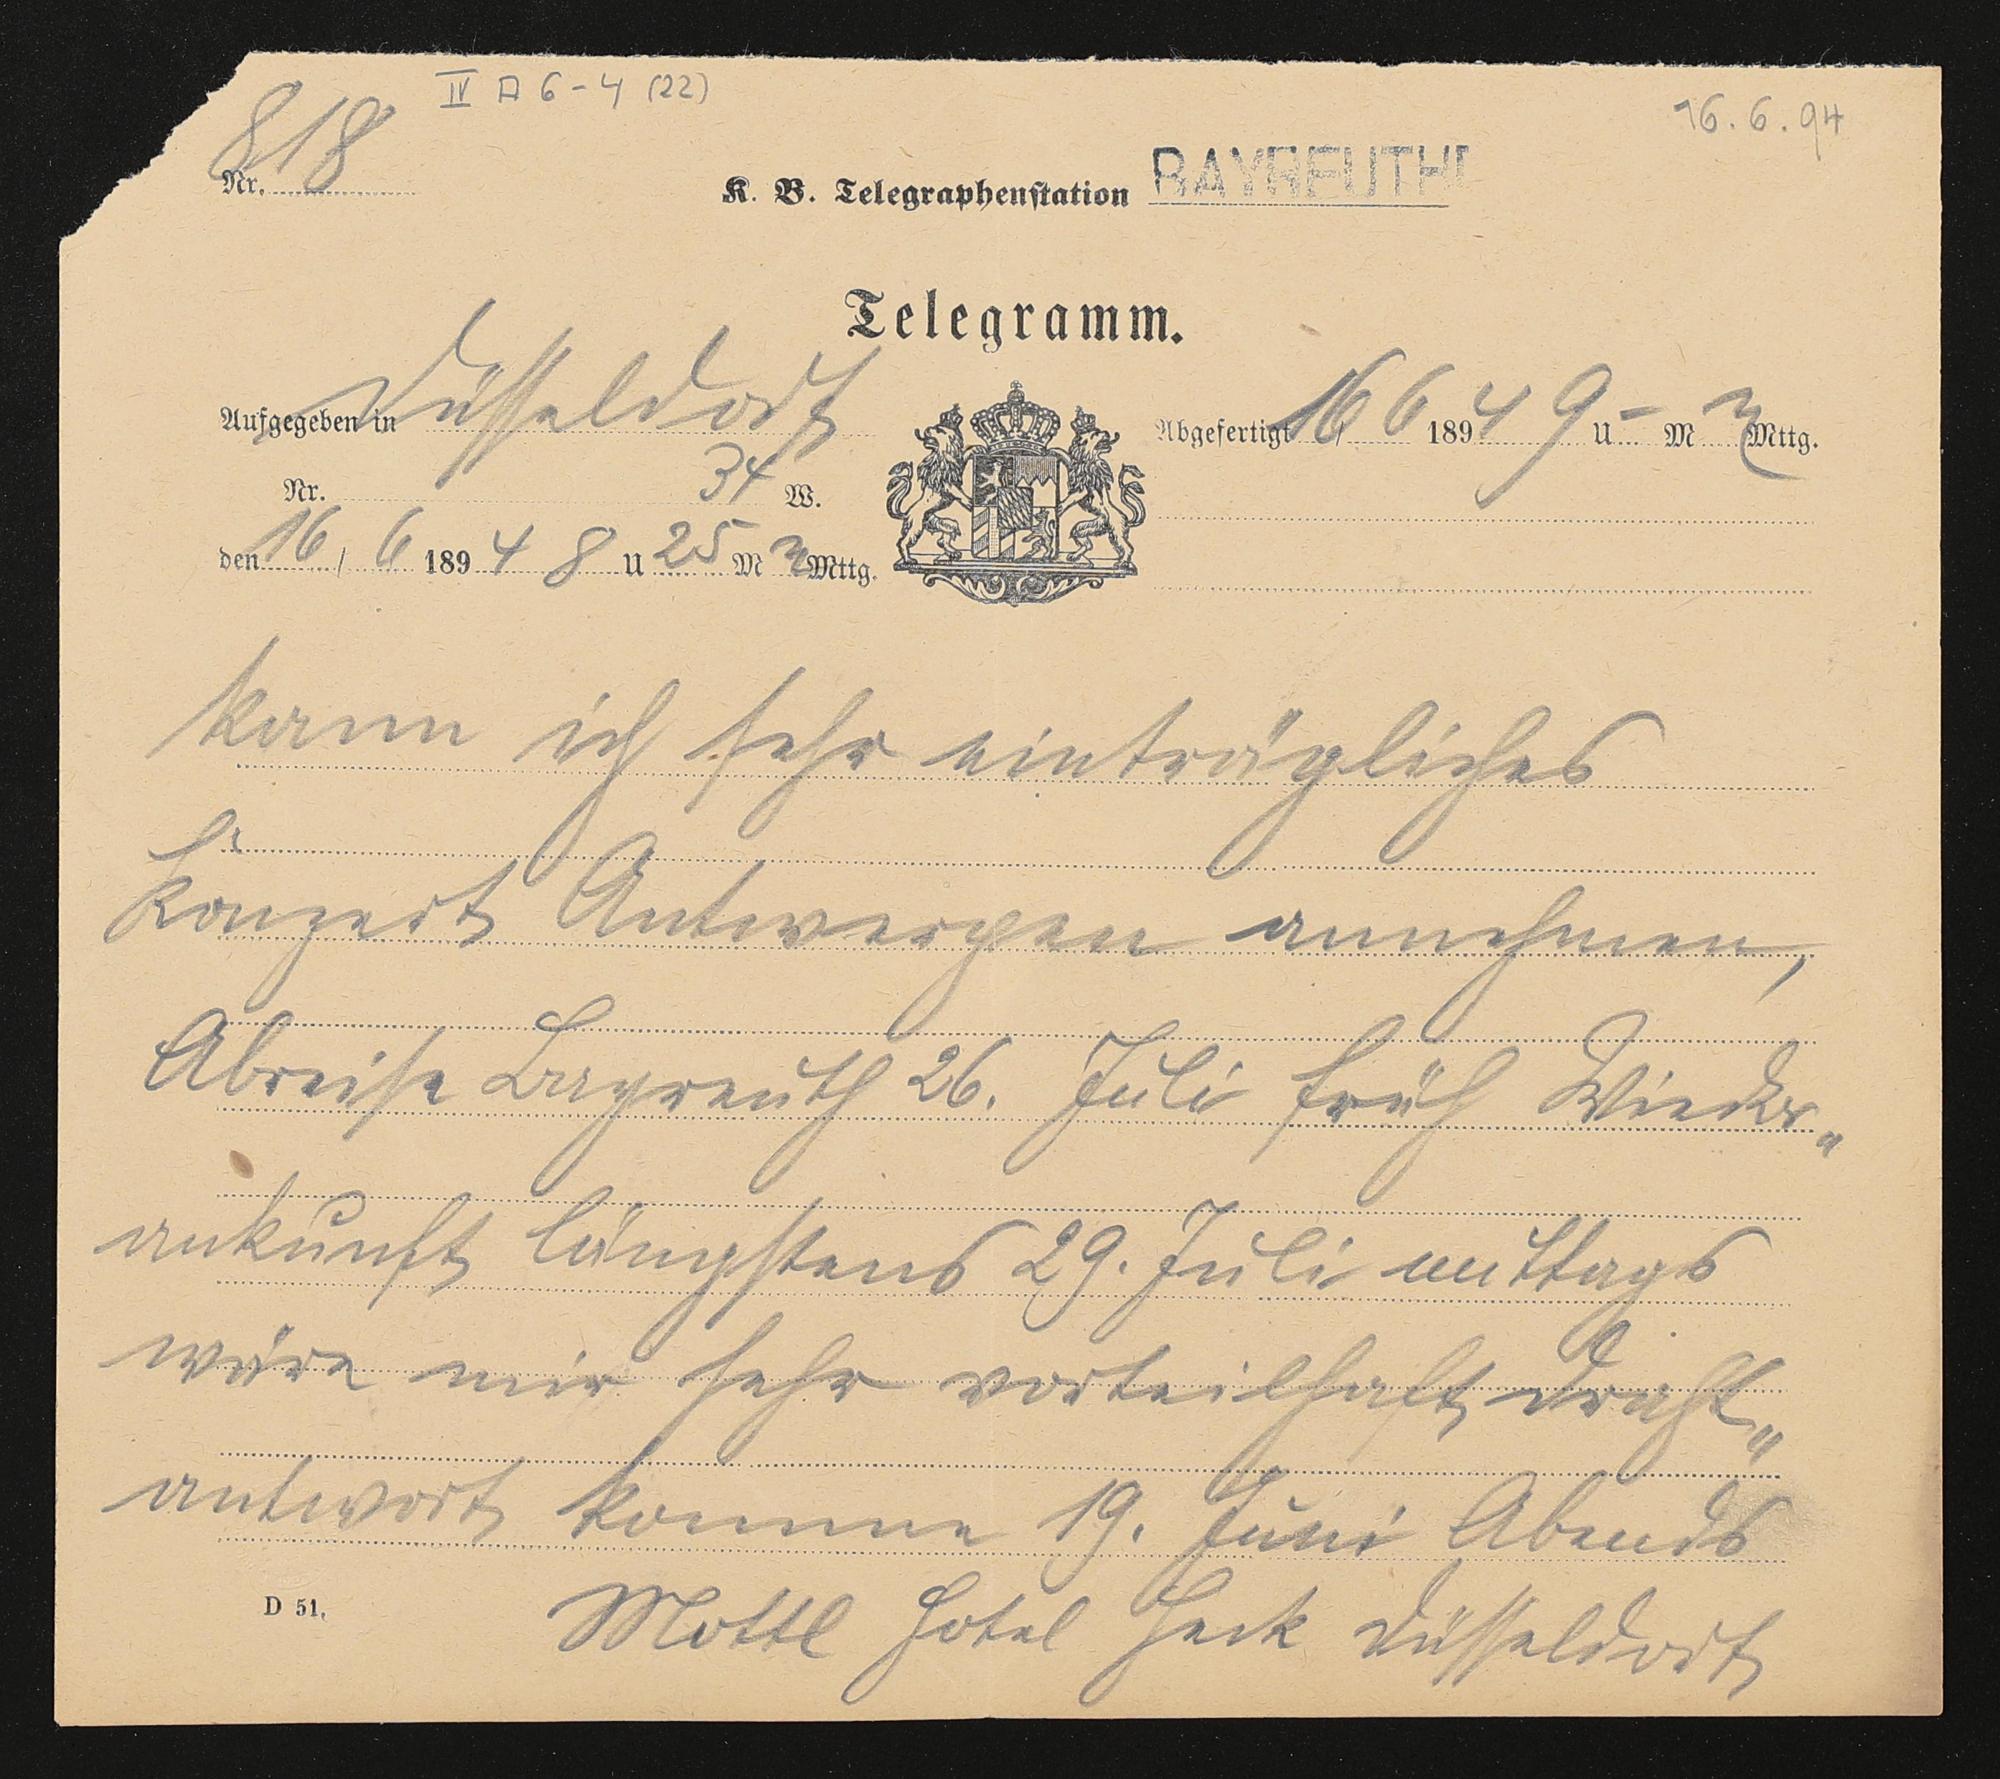 IV A 6-4 (22)
16.6.94
Nr. 818
K. B. Telegraphenstation BAYREUTH
Telegramm.
Aufgegeben in Düsseldorf
Abgefertigt 16/6 1894 9 U - M N Mttg.
Nr. 34 W.
den 16/6 1894 8 U 25 M N Mttg.
kann ich sehr einträgliches
Konzert Antwerpen annehmen,
Abreise Bayreuth 26. Juli früh Wieder„
ankunft längstens 29. Juli mittags
wäre mir sehr vorteilhaft draht„
antwort komme 19. Juni Abends
Mottl Hotel Heck Düsseldorf
D 51.